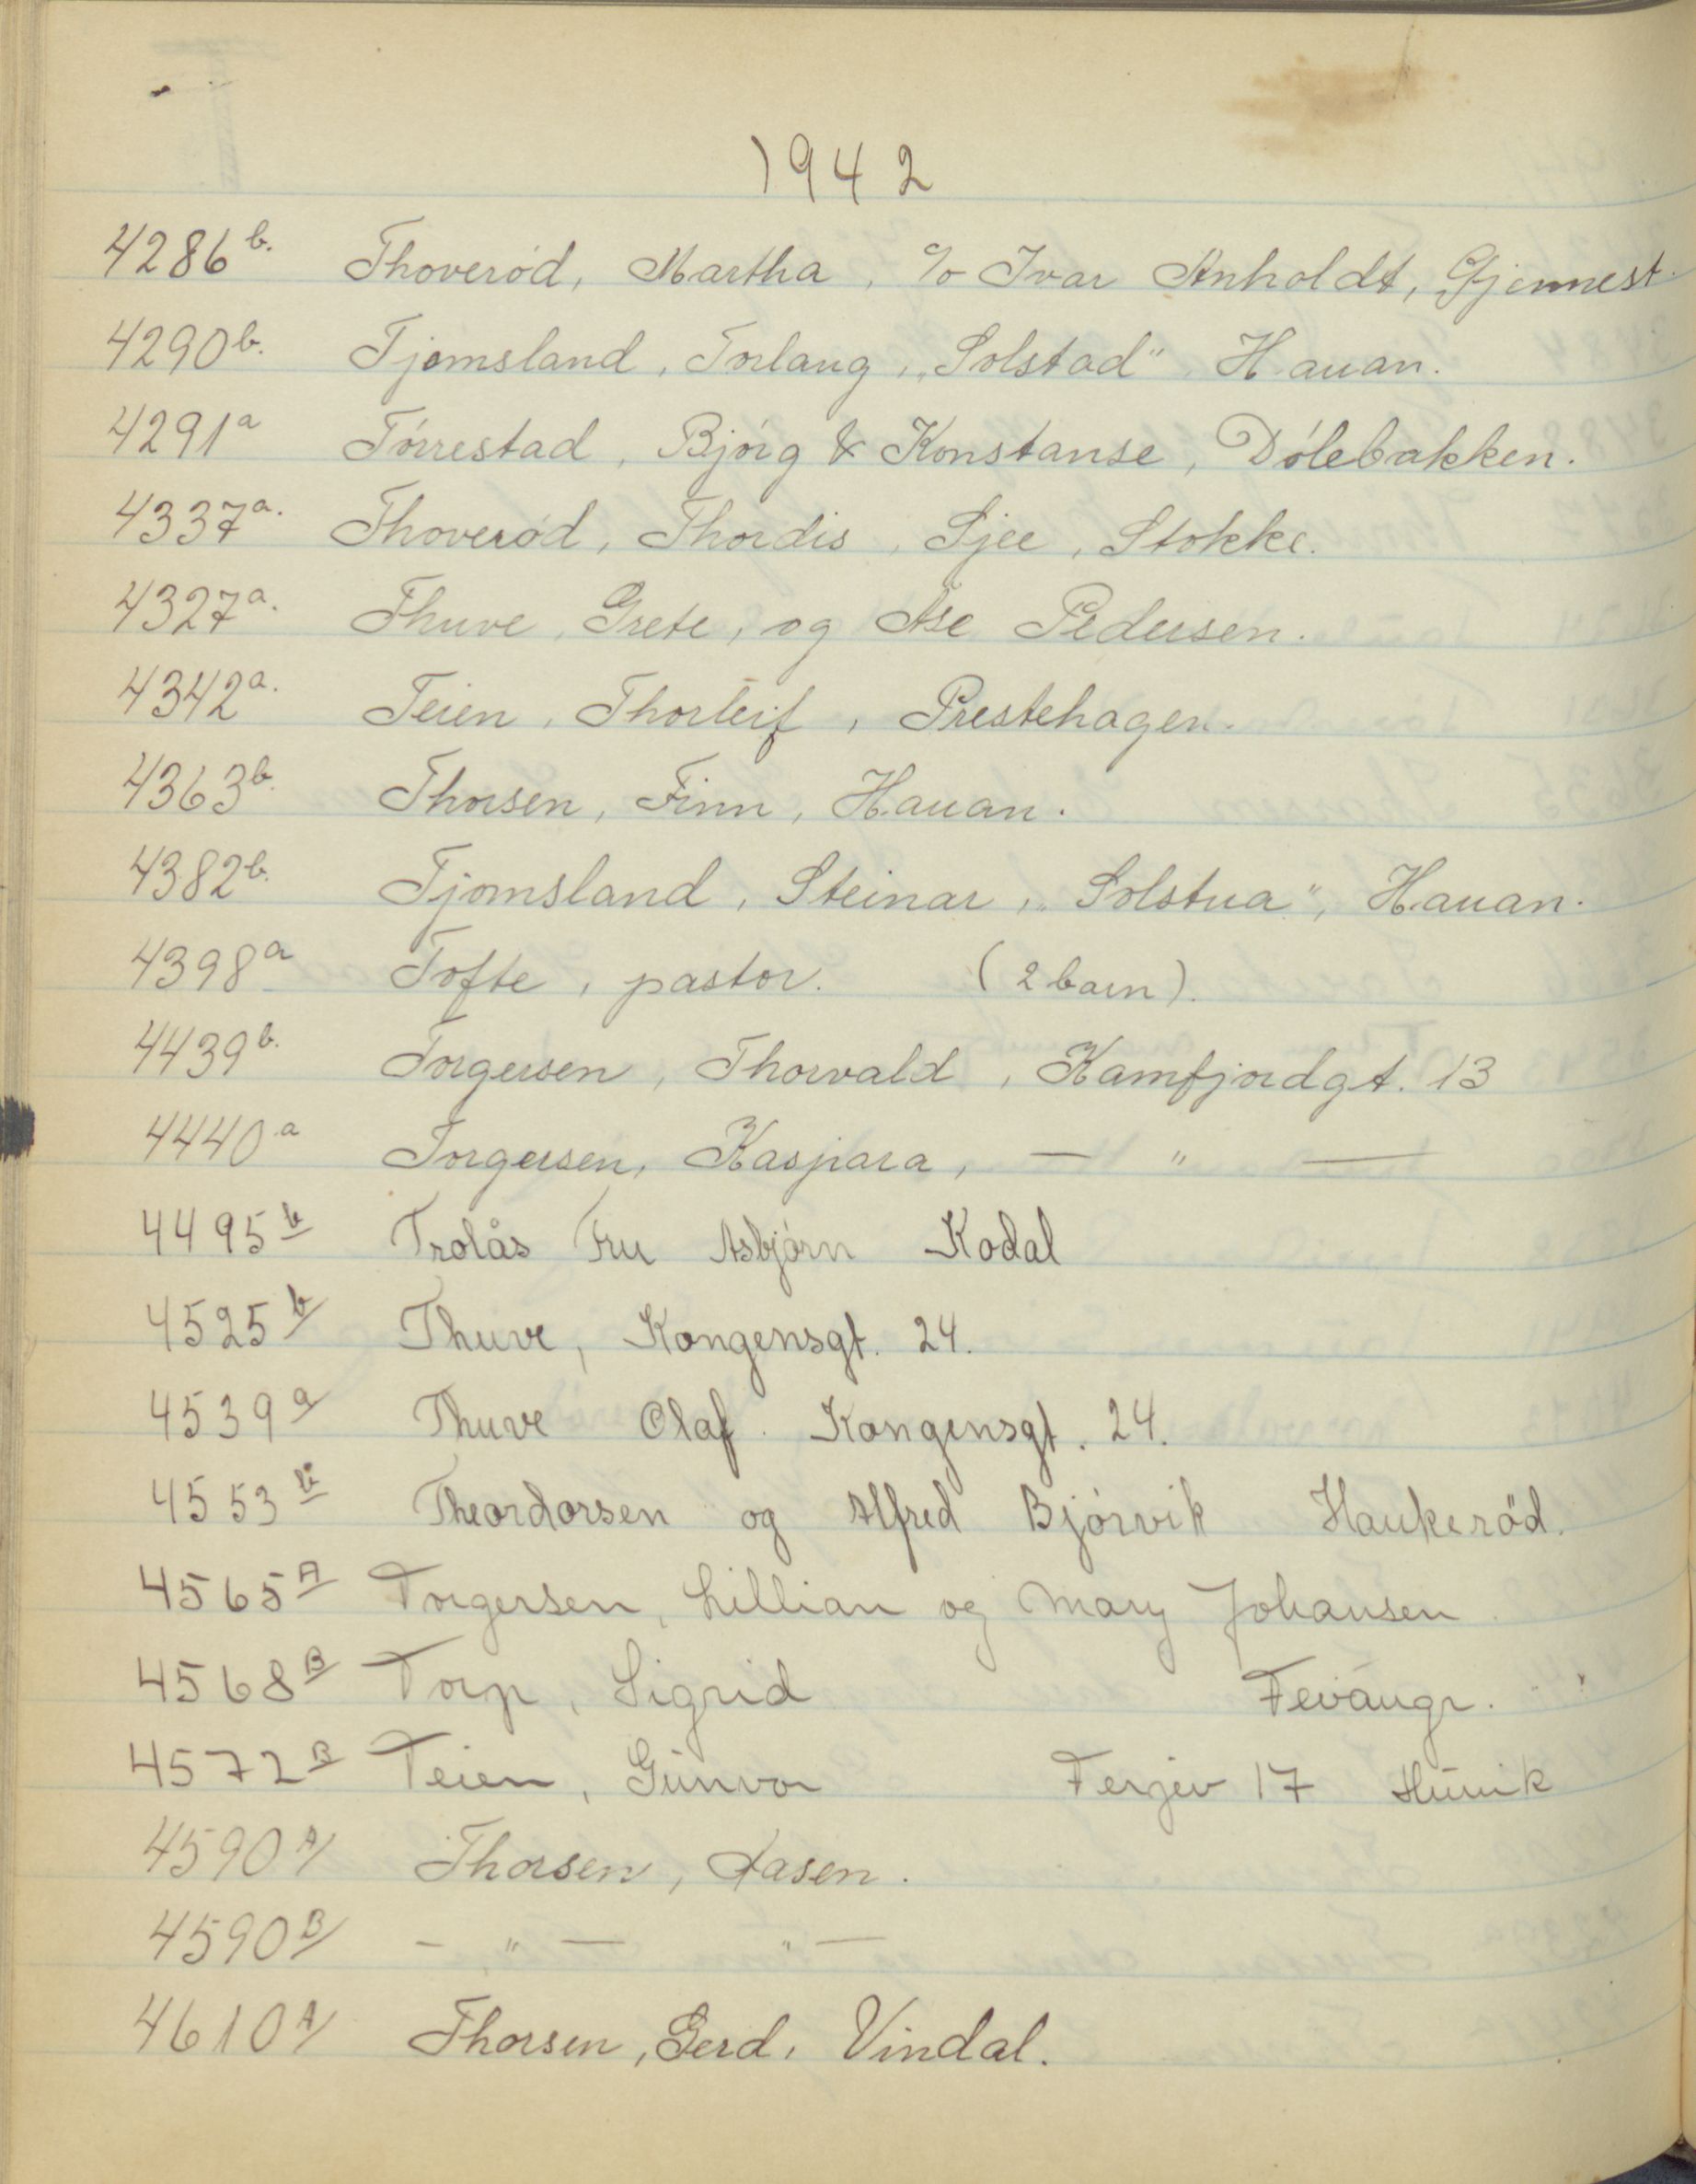 1942
4286 b. Thoverød, Martha, c/o Ivar Anholdt, Gjennest.
4290 b. Tjomsland, Torlaug, "Solstad" Hauan.
4291 a Tørrestad, Bjørg & Konstanse, Dølebakken.
4337 a. Thoverød, Thordis, Sjee, Stokke.
4327 a. Thuve, Grete, og Åse Pedersen.
4342 a. Teien, Thorleif, Prestehagen.
4363 b. Thorsen, Finn, Hauan.
4382 b. Tjomsland, Steinar, "Solstua", Hauan.
4398 a Tofte, pastor. (2 barn).
4439 b. Torgersen, Thorvald, Kamfjordgt. 13
4440 a Torgersen, Kaspara, — " —
4495 b Trolås Fru Asbjørn Kodal
4525 b/ Thuve, Kongensgt. 24.
4539 a/ Thuve Olaf. Kongensgt. 24.
4553 b Theordorsen og Alfred Bjørvik Haukerød.
4565 A Torgersen, Lillian og Mary Johansen
4568 B Torp, Sigrid Fevangr.
4572 B Teien, Gunvor Ferjev 17 Huvik
4590 A/ Thorsen, Aasen.
4590 B/ — " — " —
4610 A/ Thorsen, Gerd, Vindal.